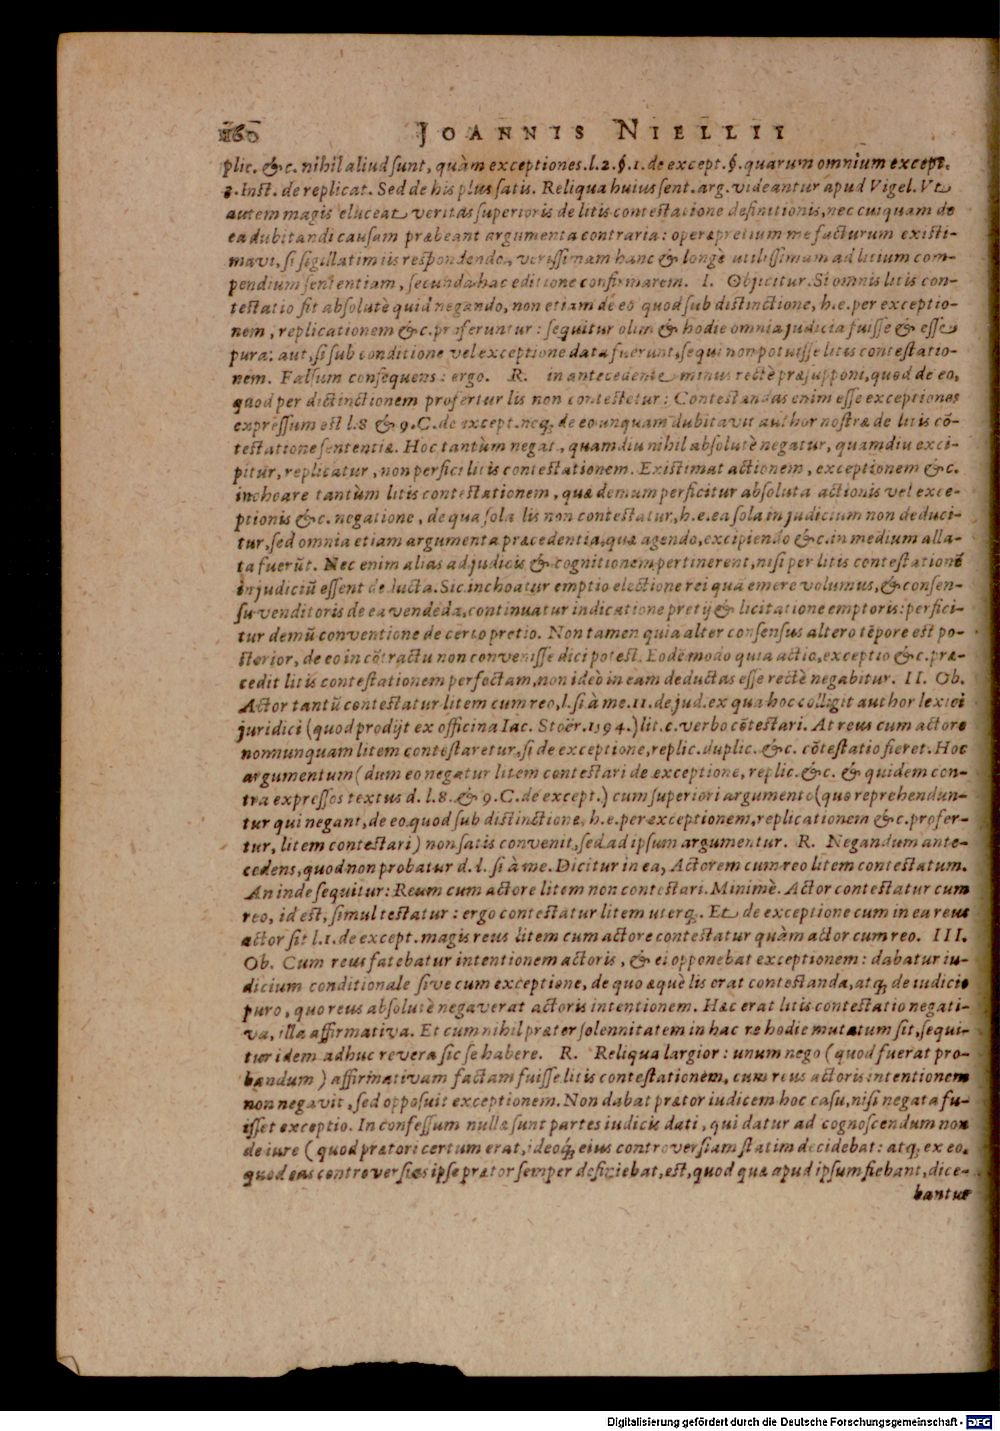 160 JOANNIS NIELLII
plic. &c. nihil aliud sunt, quàm exceptiones. l. 2. §. 1. de except. §. quarum omnium except.
3. Inst. de replicat. Sed de his plus satis. Reliqua huius sent. arg. videantur apud Vigel. Vt
autem magis eluceat veritas superioris de litis contestatione definitionis, nec cuiquam de
ea dubitandi causam præbeant argumenta contraria: operæpretium me facturum existi-
mavi, si sigillatim iis respondendo, verissimam hanc & longè utilissimam ad litium com-
pendium sententiam, secunda hac editione confirmarem. I. Objicitur. Si omnis litis con-
testatio fit absolutè quid negando, non etiam de eo quod sub distinctione, h.e. per exceptio-
nem, replicationem &c. proferuntur: sequitur olim & hodie omnia judicia fuisse & esse
pura: aut, si sub conditione vel exceptione data fuerunt, sequi non potuisse litis contestatio-
nem. Falsum consequens: ergo. R. in antecedente minus rectè præsupponi, quod de eo,
quod per distinctionem profertur lis non contestetur: Contestandas enim esse exceptiones
expressum est l. 8 & 9. C. de except. neq; de eo unquam dubitavit author nostræ de litis cō-
testatione sententiæ. Hoc tantùm negat, quamdiu nihil absolutè negatur, quamdiu exci-
pitur, replicatur, non perfici litis contestationem. Existimat actionem, exceptionem &c.
inchoare tantùm litis contestationem, quæ demum perficitur absoluta actionis vel exce-
ptionis &c. negatione, de qua sola lis non contestatur, h.e. ea sola in judicium non deduci-
tur, sed omnia etiam argumenta præcedentia, quæ agendo, excipiendo &c. in medium alla-
ta fuerūt. Nec enim alias ad judicis & cognitionem pertinerent, nisi per litis contestationē
in judiciū essent deducta. Sic inchoatur emptio electione rei quā emere volumus, & consen-
su venditoris de ea vendēda, continuatur indicatione pretij & licitatione emptoris: perfici-
tur demū conventione de certo pretio. Non tamen quia alter consensus altero tēpore est po-
sterior, de eo in cōtractu non convenisse dici potest. Eodē modo quia actio, exceptio &c. præ-
cedit litis contestationem perfectam, non ideò in eam deductas esse rectè negabitur. II. Ob.
Actor tantū contestatur litem cum reo, l. si à me. 11. de jud. ex qua hoc colligit author lexici
juridici (quod prodijt ex officina Iac. Stoër. 1594.) lit. c. verbo cōtestari. At reus cum actore
nonnunquam litem contestaretur, si de exceptione, replic. duplic. &c. cōtestatio fieret. Hoc
argumentum (dum eo negatur litem contestari de exceptione, replic. &c. & quidem con-
tra expressos textus d. l. 8. & 9. C. de except.) cum superiori argumento (quo reprehendun-
tur qui negant, de eo quod sub distinctione, h.e. per exceptionem, replicationem &c. profer-
tur, litem contestari) non satis convenit, sed ad ipsum argumentur. R. Negandum ante-
cedens, quod non probatur d. l. si à me. Dicitur in ea, Actorem cum reo litem contestatum.
An inde sequitur: Reum cum actore litem non contestari. Minimè. Actor contestatur cum
reo, id est, simul testatur: ergo contestatur litem uterq;. Et de exceptione cum in ea reus
actor sit l. 1. de except. magis reus litem cum actore contestatur quàm actor cum reo. III.
Ob. Cum reus fatebatur intentionem actoris, & ei opponebat exceptionem: dabatur iu-
dicium conditionale sive cum exceptione, de quo æquè lis erat contestanda, atq; de iudicio
puro, quo reus absolutè negaverat actoris intentionem. Hæc erat litis contestatio negati-
va, illa affirmativa. Et cum nihil præter solennitatem in hac re hodie mutatum sit, sequi-
tur idem adhuc revera sic se habere. R. Reliqua largior: unum nego (quod fuerat pro-
bandum) affirmativam factam fuisse litis contestationem, cum reus actoris intentionem
non negavit, sed opposuit exceptionem. Non dabat prætor iudicem hoc casu, nisi negata fu-
isset exceptio. In confessum nullæ sunt partes iudicis dati, qui datur ad cognoscendum non
de iure (quod prætori certum erat, ideoq; eius controversiam statim decidebat: atq; ex eo,
quod eas controversias ipse prætor semper definiebat, est, quod quæ apud ipsum fiebant, dice-
bantur
Digitalisierung gefördert durch die Deutsche Forschungsgemeinschaft - DFG